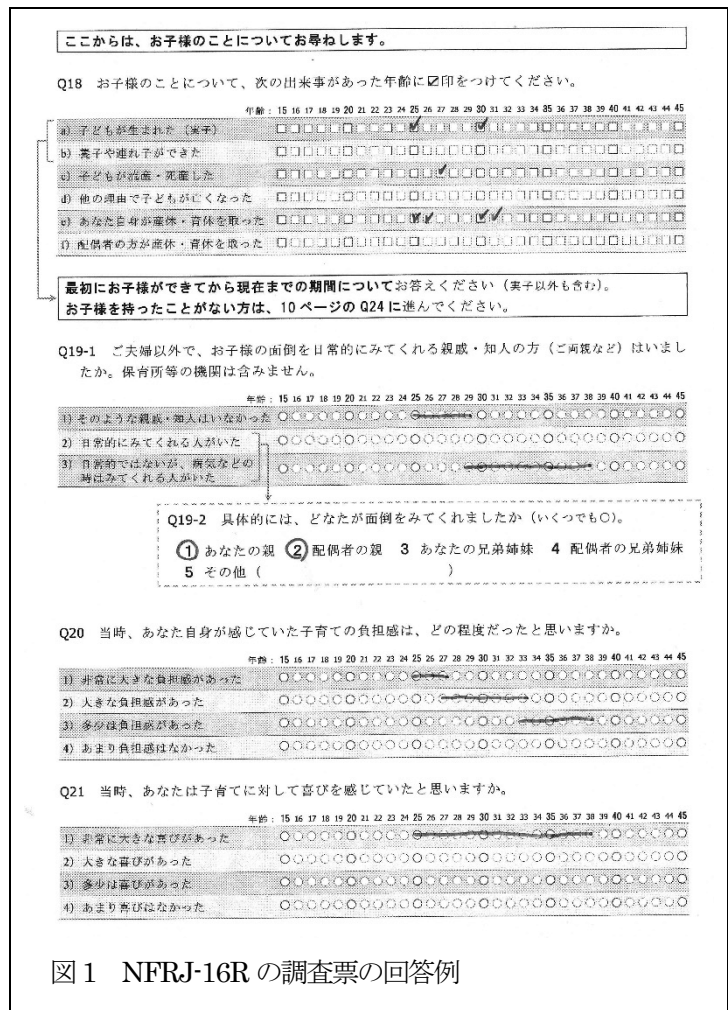 ここからは、お子様のことについてお尋ねします。
Q18 お子様のことについて、次の出来事があった年齢に☑印をつけてください。
年齢: 15 16 17 18 19 20 21 22 23 24 25 26 27 28 29 30 31 32 33 34 35 36 37 38 39 40 41 42 43 44 45
a) 子どもが生まれた（実子）
b) 養子や連れ子ができた
c) 子どもが流産・死産した
d) 他の理由で子どもが亡くなった
e) あなた自身が産休・育休を取った
f) 配偶者の方が産休・育休を取った
最初にお子様ができてから現在までの期間についてお答えください（実子以外も含む）。
お子様を持ったことがない方は、10 ページの Q24 に進んでください。
Q19-1 ご夫婦以外で、お子様の面倒を日常的にみてくれる親戚・知人の方（ご両親など）はいまし
たか。保育所等の機関は含みません。
年齢: 15 16 17 18 19 20 21 22 23 24 25 26 27 28 29 30 31 32 33 34 35 36 37 38 39 40 41 42 43 44 45
1) そのような親戚・知人はいなかった
2) 日常的にみてくれる人がいた
3) 日常的ではないが、病気などの
時はみてくれる人がいた
Q19-2 具体的には、どなたが面倒をみてくれましたか（いくつでも○）。
1 あなたの親 2 配偶者の親 3 あなたの兄弟姉妹 4 配偶者の兄弟姉妹
5 その他（ ）
Q20 当時、あなた自身が感じていた子育ての負担感は、どの程度だったと思いますか。
年齢: 15 16 17 18 19 20 21 22 23 24 25 26 27 28 29 30 31 32 33 34 35 36 37 38 39 40 41 42 43 44 45
1) 非常に大きな負担感があった
2) 大きな負担感があった
3) 多少は負担感があった
4) あまり負担感はなかった
Q21 当時、あなたは子育てに対して喜びを感じていたと思いますか。
年齢: 15 16 17 18 19 20 21 22 23 24 25 26 27 28 29 30 31 32 33 34 35 36 37 38 39 40 41 42 43 44 45
1) 非常に大きな喜びがあった
2) 大きな喜びがあった
3) 多少は喜びがあった
4) あまり喜びはなかった
図１ NFRJ-16R の調査票の回答例